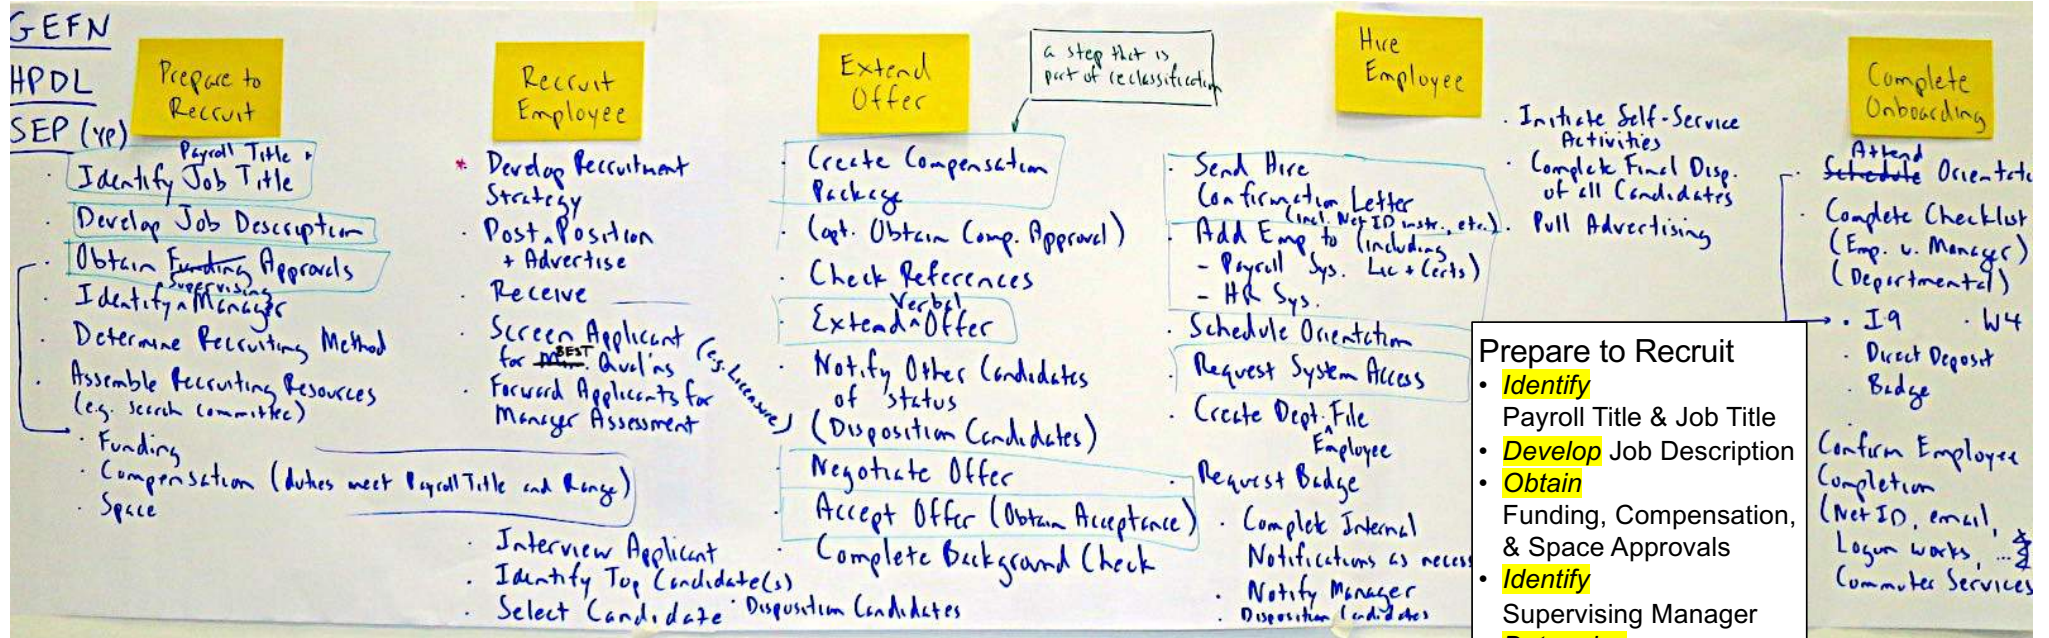 GEFN
HPDL
SEP (YP)
Prepare to
Recruit
Payroll Title +
· Identify Job Title
· Develop Job Description
· Obtain Funding Approvals
Supervising
· Identify ^ Manager
· Determine Recruiting Method
· Assemble Recruiting Resources
(e.g. search committee)
· Funding
· Compensation (duties meet Payroll Title and Range)
· Space
Recruit
Employee
* Develop Recruitment
Strategy
· Post ^ Position
+ Advertise
· Receive
· Screen Applicant
for BEST Qual'ns
(e.g. Licensure)
· Forward Applicants for
Manager Assessment
· Interview Applicant
· Identify Top Candidate(s)
· Select Candidate · Disposition Candidates
Extend
Offer
a step that is
part of reclassification
· Create Compensation
Package
· (opt. Obtain Comp. Approval)
· Check References
Verbal
· Extend ^ Offer
· Notify Other Candidates
of status
(Disposition Candidates)
· Negotiate Offer
· Accept Offer (Obtain Acceptance)
· Complete Background Check
Hire
Employee
· Send Hire
Confirmation Letter
(incl. Net ID instr., etc.)
· Add Emp to (including
- Payroll Sys. Lic + Certs)
- HR Sys.
· Schedule Orientation
· Request System Access
· Create Dept. File
^ Employee
· Request Badge
· Complete Internal
Notifications as necess
· Notify Manager
· Disposition Candidates
· Initiate Self-Service
Activities
· Complete Final Disp.
of all Candidates
· Pull Advertising
Complete
Onboarding
Attend
· Schedule Orientatio
· Complete Checklist
(Emp. v. Manager)
(Departmental)
· I9 · W4
· Direct Deposit
· Badge
Confirm Employee
Completion
(Net ID, email,
Logon works, ...
Commuter Services
Prepare to Recruit
• Identify
Payroll Title & Job Title
• Develop Job Description
• Obtain
Funding, Compensation,
& Space Approvals
• Identify
Supervising Manager